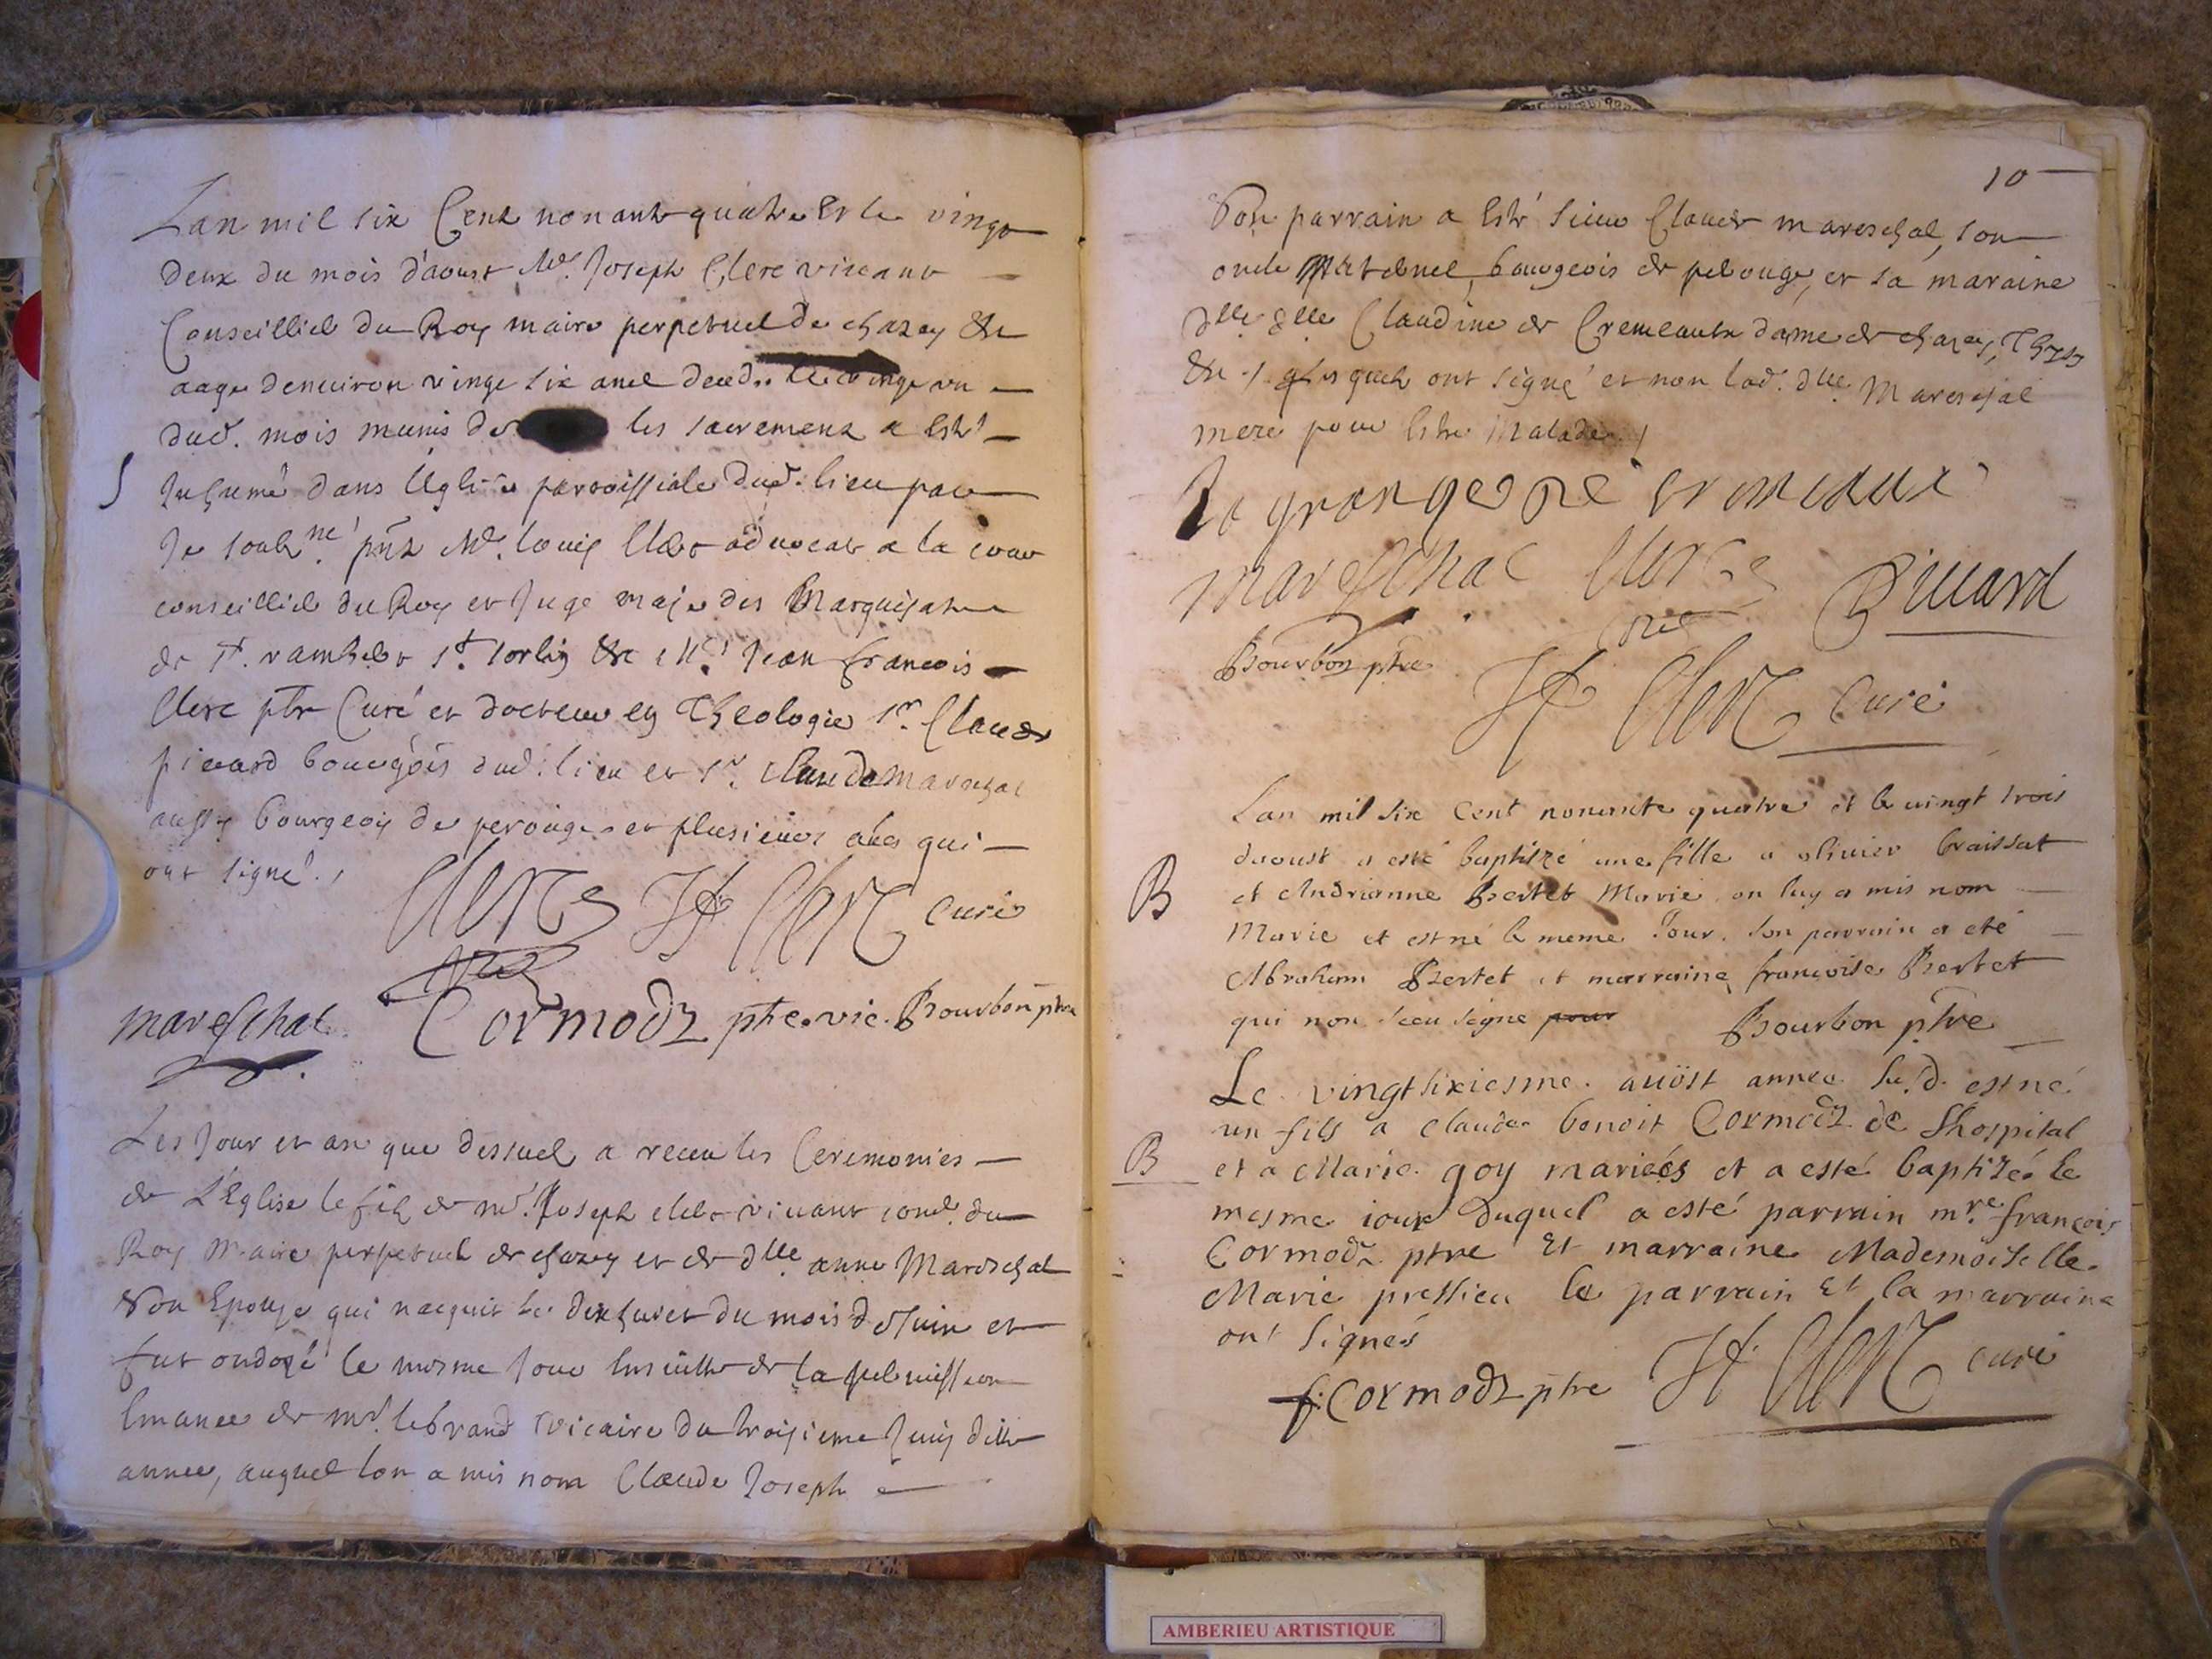 Lan mil six Cent nonante quatre et le vingt
deux du mois d'aoust Mr. Joseph Clerc vivant
Conseillier du Roy maire perpetuel de chazey &c
aage denuiron vingt six ans deced. le vingt un
dud. mois munis de les sacrements a esté
S
Inhumé dans léglise parroissiale dud. lieu par
Je soubs.né pnts Mr. louis Clerc advocat a la cour
conseillier du Roy et Juge maje des Marquisats
de st. rambert st. sorlin &c Mr. Jean francois
Clerc ptre Curé et docteur en Theologie sr. Claude
picard bourgois dud. lieu et sr. Claude Mareschal
aussy bourgeois de perouges et plusieurs aues qui
ont signé.
Clerc JF Clerc curé
mareschal Cormodz ptre. vic. Bourbon ptre
Les Jour et an que dessus a receu les Ceremonies
de L'Eglise le fils de mr. Joseph clerc vivant cons. du
Roy Maire perpetuel de chazey et de dlle anne Mareschal
son Epouse qui nacquit le dixhuict du mois de Juin et
fut ondoyé le mesme Jour ensuitte de la permission
Emanee de mr. lebrand vicaire du troisieme Juin ditte
annee, auquel lon a mis nom Claude Joseph
10
Son parrain a Esté sieur Claude mareschal, son
oncle Maternel, bourgeois de perouge, et sa maraine
dlle Claudine de Cremeaux dame de chazey,
&c. lesquels ont signé et non lad. dlle. Mareschal
mere pour Estre Malade.
la grange de cremeaux
mareschal Clerc Picard
Bourbon ptre JF Clerc Curé
Lan mil six Cent nonante quatre et le vingt trois
daoust a esté baptizé une fille a olivier braissat
B
et Andrianne Bertet Marié on luy a mis nom
Marie et est né le meme Jour. son parrain a eté
Abraham Bertet et marraine francoise Bertet
qui non sceu signe pour Bourbon ptre
Le vingtsixiesme. auöst annee su.d. est né
un fils a claude benoit Cormodz de Lhospital
B
et a Marie goy mariées et a esté baptizée le
mesme iour duquel a esté parrain mre. françois
Cormodz ptre Et marraine Mademoiselle
Marie pressieu le parrain Et la marraine
ont signés
f. Cormodz ptre JF Clerc curé
AMBERIEU ARTISTIQUE